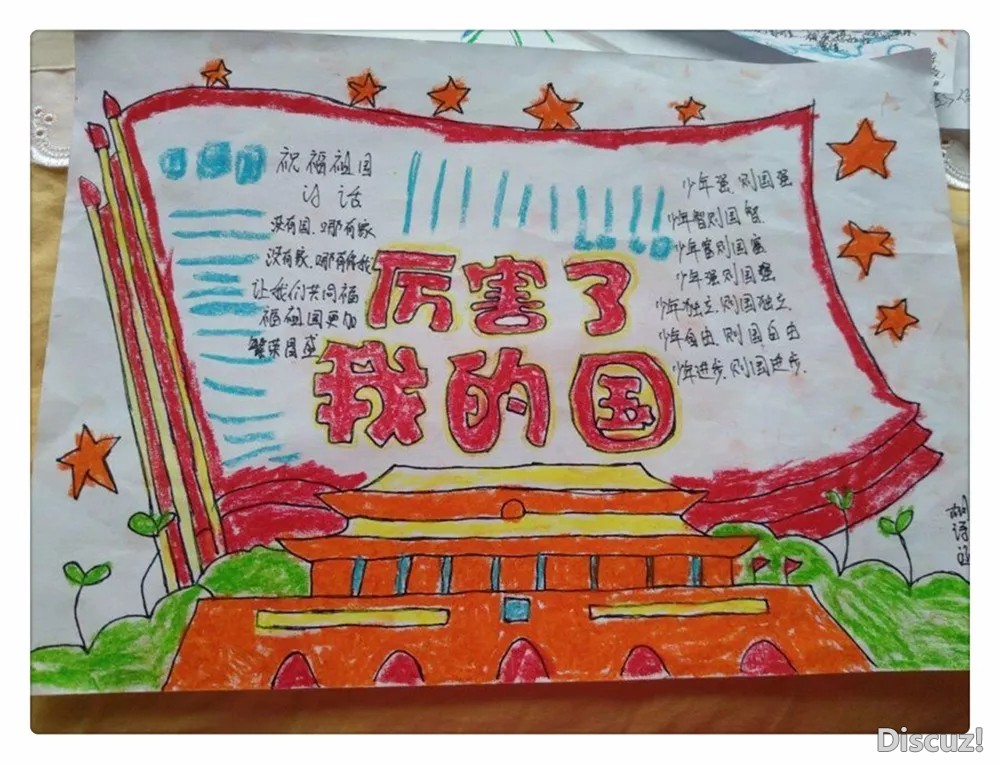 祝福祖国
的话
没有国,哪有家
没有家,哪有你我
让我们共同福
福祖国更加
繁荣昌盛
厉害了
我的国
少年强,则国强
少年智则国智
少年富则国富
少年强则国强
少年独立,则国独立,
少年自由,则国自由
少年进步,则国进步.
Discuz!